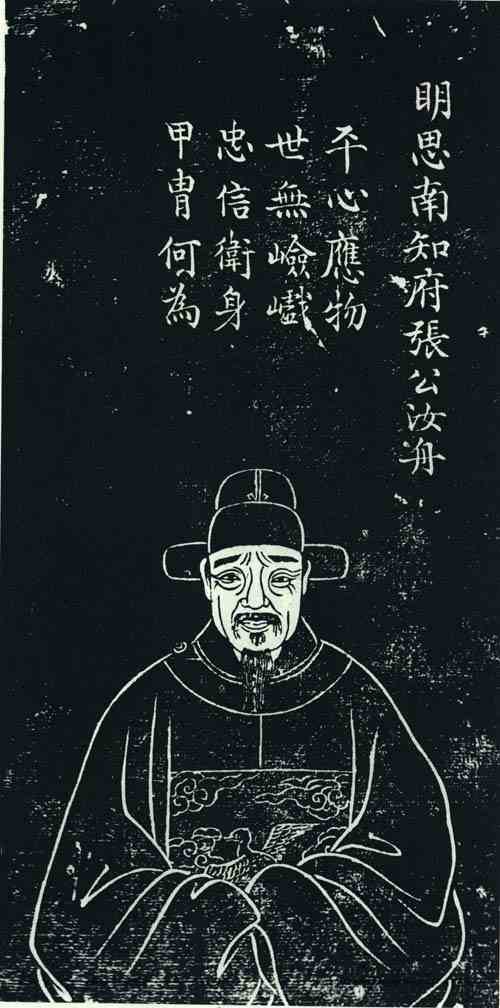 明思南知府張公汝舟
平心應物
世無嶮巇
忠信衛身
甲冑何為